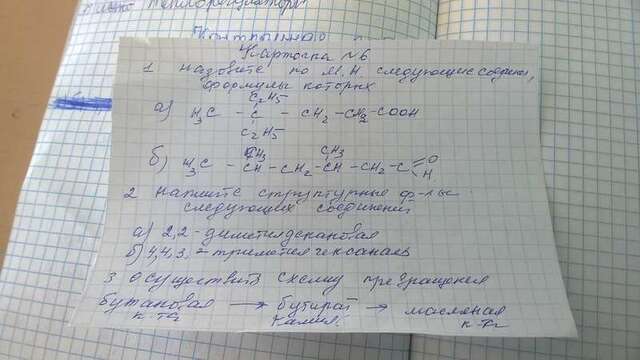 Карточка №6
1 назовите по М.Н. следующие соединен,
формулы которых
C₂H₅
а) H₃C - C - CH₂ - CH₂ - COOH
C₂H₅
CH₃ CH₃
б) H₃C - CH - CH₂ - CH - CH₂ - C = O
H
2 напишите структурные ф-лы
следующих соединений
а) 2,2-диметилдекановая
б) 4,4,3,-триметилгексаналь
3 осуществить схему превращения
бутановая → бутират → масляная
к-та калия к-та